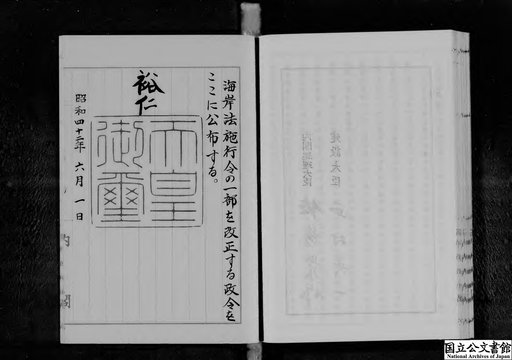 海岸法施行令の一部を改正する政令を
ここに公布する。
裕仁
天皇
御璽
昭和四十二年六月一日
内閣
国立公文書館
National Archives of Japan